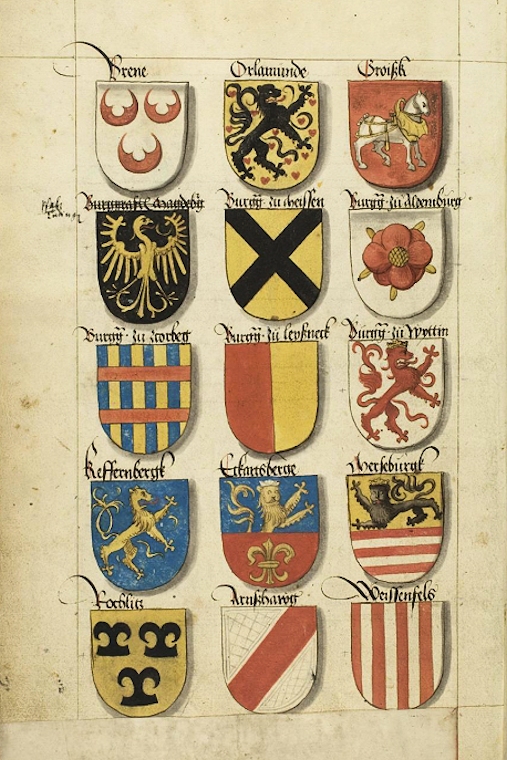 Brene Orlamunde Groißk
Burggraffe Magdebg Burgg zu Meissen Burgg zu Aldemburg
Burgg zu Zcorbeg Burgg zu Leyßneck Burgg zu Wyttin
Keffernbergk Eckartsberge Merseburgk
Rochlitz Arnßhawg Weissenfels